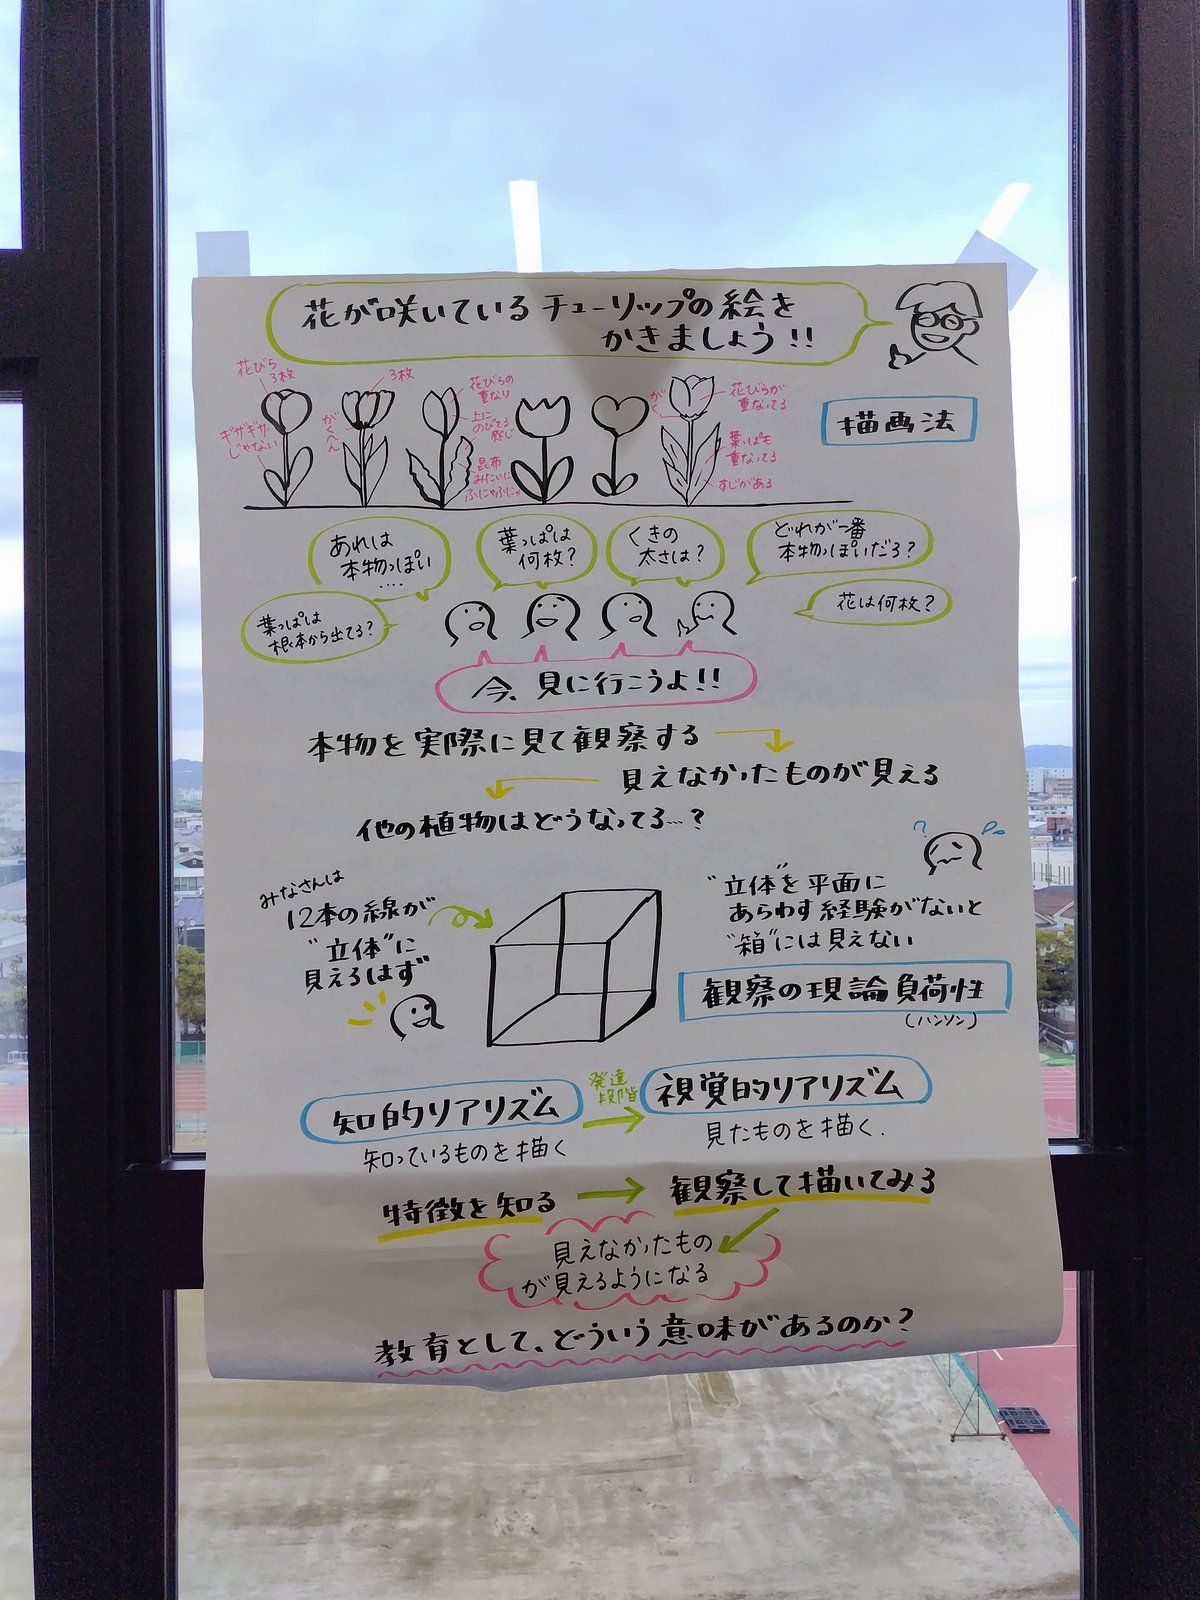 花が咲いているチューリップの絵を
かきましょう!!
描画法
花びら
3枚
ギザギザ
じゃない
3枚
がくへん
花びらの
重なり
上に
のびてる
感じ
昆布
みたいに
ふにゃふにゃ
がく
花びらが
重なってる
葉っぱも
重なってる
すじがある
あれは
本物っぽい
....
葉っぱは
何枚?
くきの
太さは?
どれが一番
本物っぽいだろ?
葉っぱは
根本から出てる?
花は何枚?
今、見に行こうよ!!
本物を実際に見て観察する
見えなかったものが見える
他の植物はどうなってる…?
みなさんは
12本の線が
"立体"に
見えるはず
?
"立体"を平面に
あらわす経験がないと
"箱"には見えない
観察の現論負荷性
(ハンソン)
知的リアリズム
発達
段階
視覚的リアリズム
知っているものを描く
見たものを描く.
特徴を知る
観察して描いてみる
見えなかったもの
が見えるようになる
教育として、どういう意味があるのか?